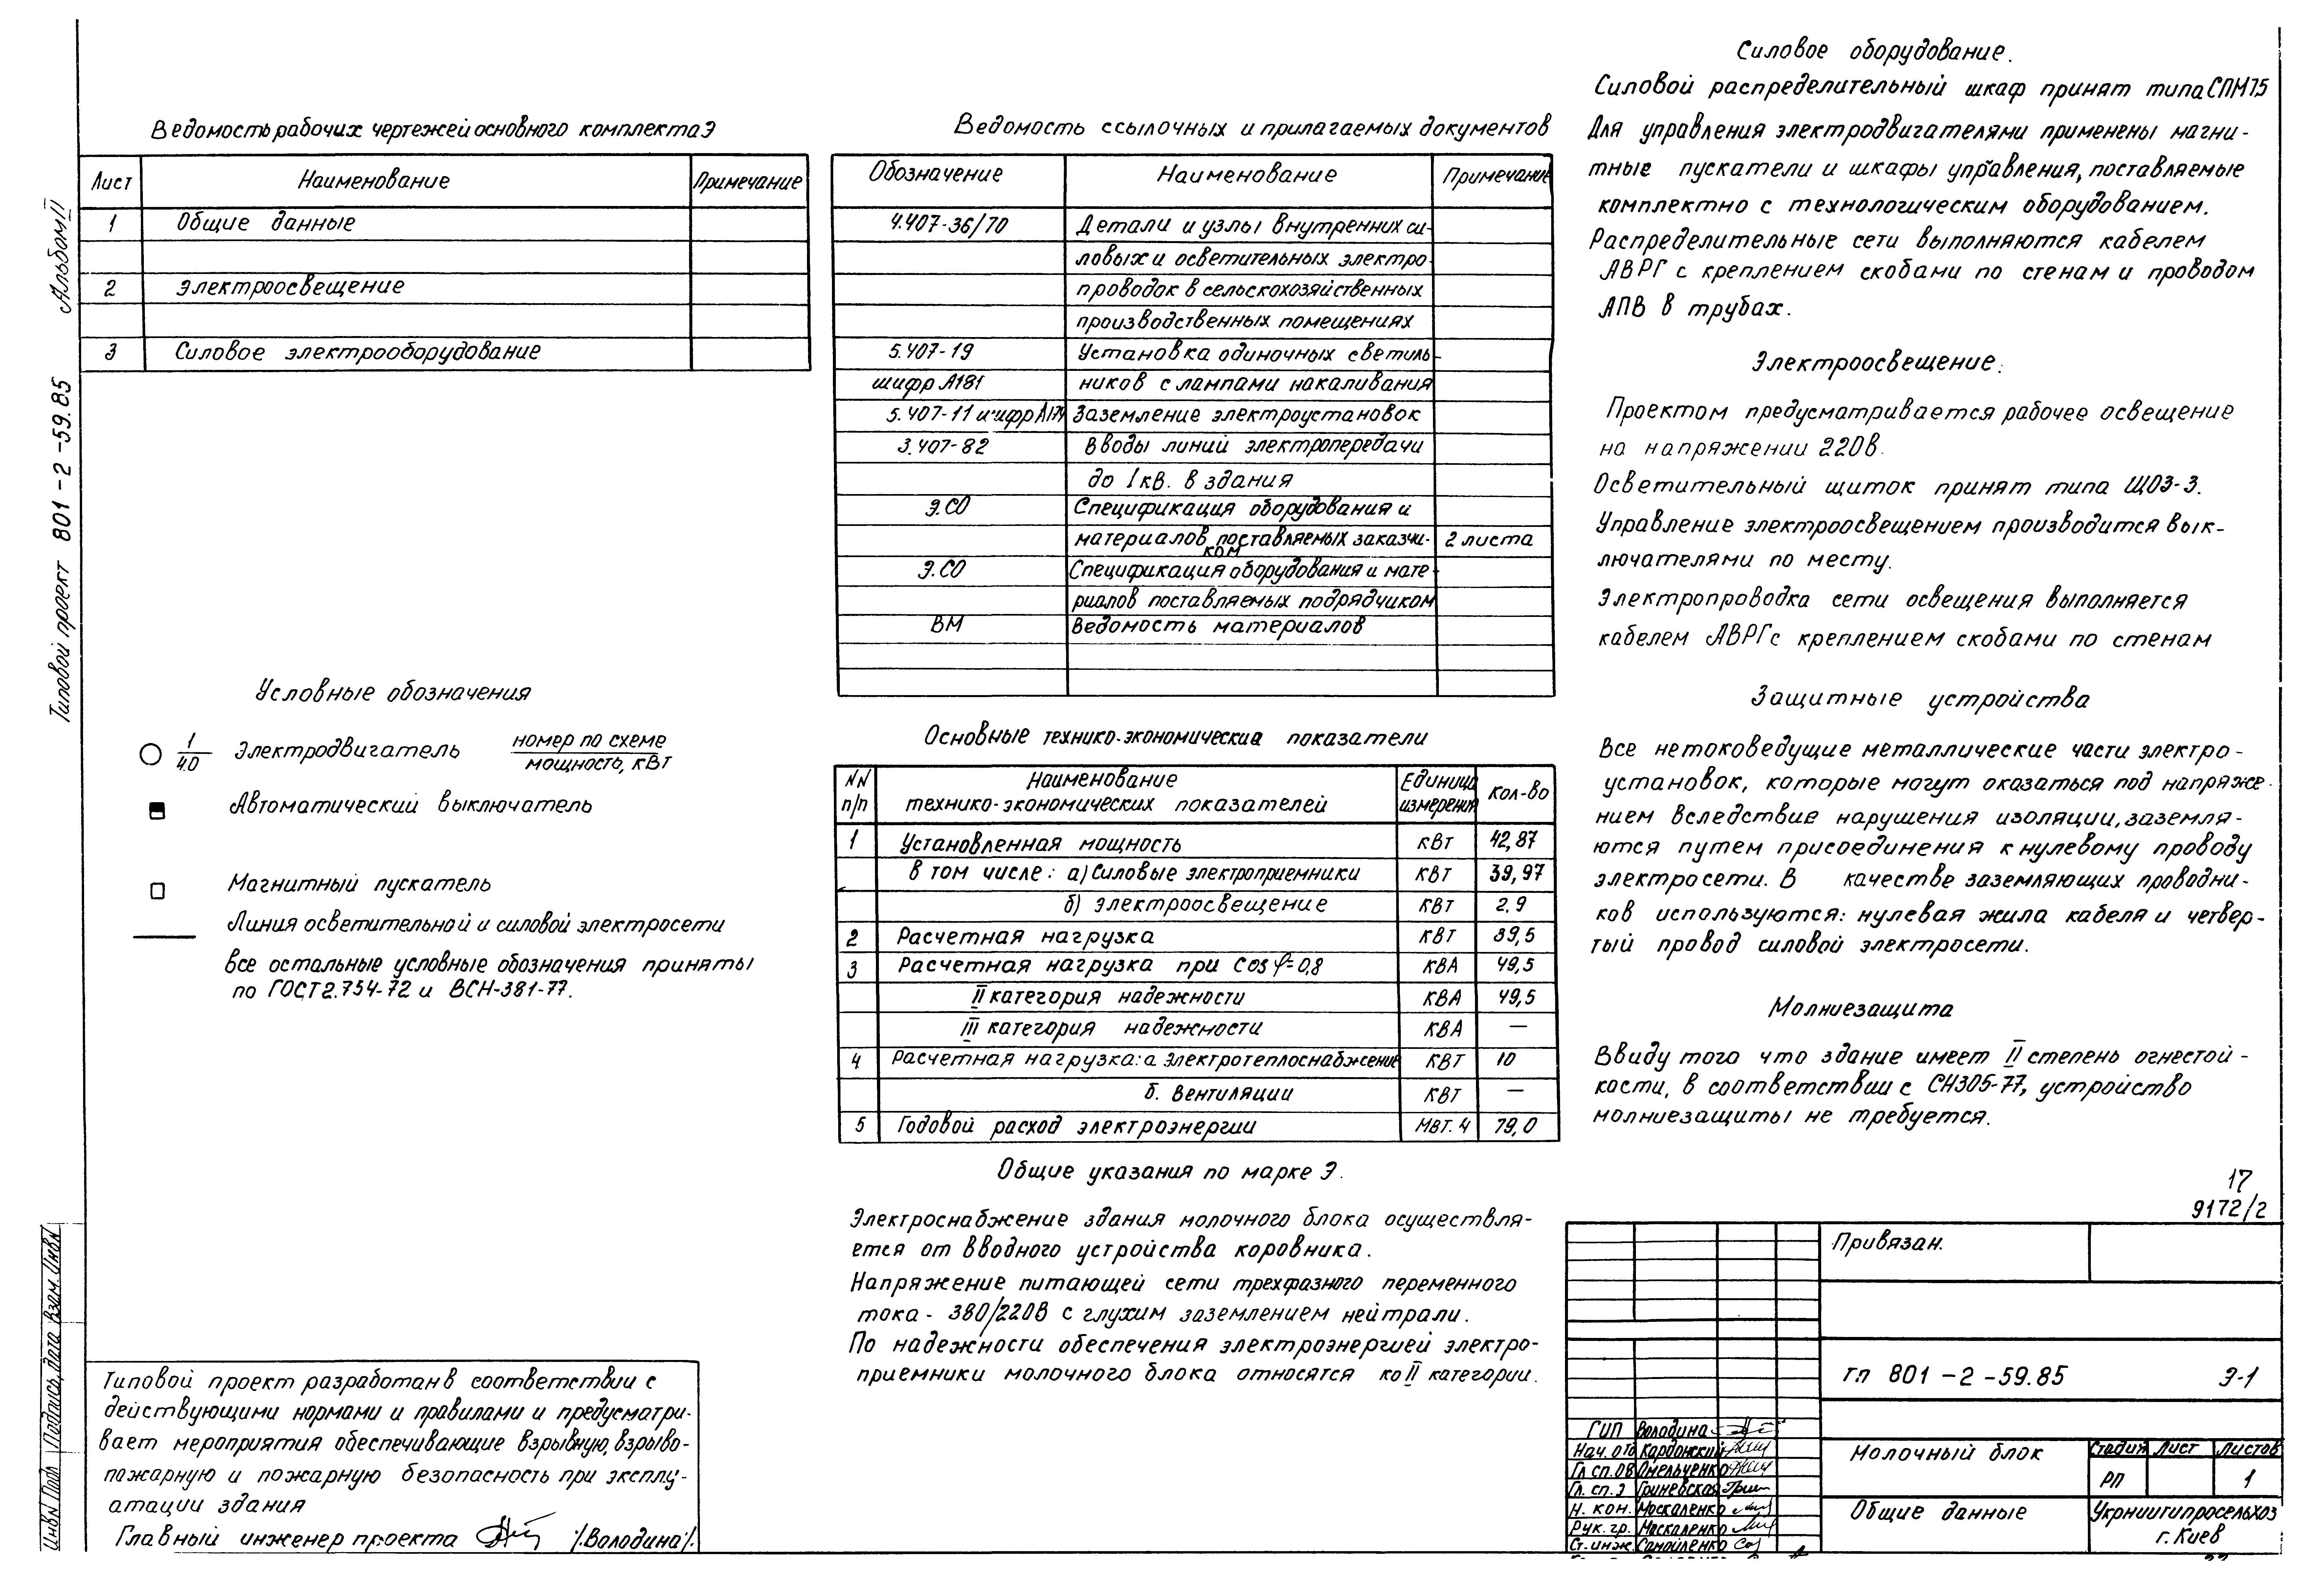 Альбом II
Типовой проект 801-2-59.85
Взам. Инв N
Подпись, дата
Инв N Подл
Ведомость рабочих чертежей основного комплекта Э
Лист Наименование Примечание
1 Общие данные
2 Электроосвещение
3 Силовое электрооборудование
Условные обозначения
1/4.0 Электродвигатель номер по схеме
мощность, кВт
Автоматический выключатель
Магнитный пускатель
Линия осветительной и силовой электросети
все остальные условные обозначения приняты
по ГОСТ 2.754-72 и ВСН-381-77.
Типовой проект разработан в соответствии с
действующими нормами и правилами и предусматри-
вает мероприятия обеспечивающие взрывную, взрыво-
пожарную и пожарную безопасность при эксплу-
атации здания
Главный инженер проекта /Володина/.
Ведомость ссылочных и прилагаемых документов
Обозначение Наименование Примечание
4.407-36/70 Детали и узлы внутренних си-
ловых и осветительных электро-
проводок в сельскохозяйственных
производственных помещениях
5.407-19 Установка одиночных светиль-
шифр А181 ников с лампами накаливания
5.407-11 шифр А174 Заземление электроустановок
3.407-82 Вводы линий электропередачи
до 1 кв. в здания
Э.СО Спецификация оборудования и
материалов поставляемых заказчи- 2 листа
ком
Э.СО Спецификация оборудования и мате-
риалов поставляемых подрядчиком
ВМ Ведомость материалов
Основные технико-экономические показатели
NN Наименование Единица Кол-во
п/п технико-экономических показателей измерения
1 Установленная мощность кВт 42,87
в том числе: а) Силовые электроприемники кВт 39,97
б) электроосвещение кВт 2.9
2 Расчетная нагрузка кВт 39,5
3 Расчетная нагрузка при Cos φ=0,8 КВА 49,5
II категория надежности КВА 49,5
III категория надежности КВА —
4 Расчетная нагрузка: а электротеплоснабжение КВТ 10
б. Вентиляции кВт —
5 Годовой расход электроэнергии Мвт. ч 79,0
Общие указания по марке Э.
Электроснабжение здания молочного блока осуществля-
ется от вводного устройства коровника.
Напряжение питающей сети трехфазного переменного
тока - 380/220В с глухим заземлением нейтрали.
По надежности обеспечения электроэнергией электро-
приемники молочного блока относятся ко II категории.
Силовое оборудование.
Силовой распределительный шкаф принят типа СПМ75
Для управления электродвигателями применены магни-
тные пускатели и шкафы управления, поставляемые
комплектно с технологическим оборудованием.
Распределительные сети выполняются кабелем
АВРГ с креплением скобами по стенам и проводом
АПВ в трубах.
Электроосвещение.
Проектом предусматривается рабочее освещение
на напряжении 220в.
Осветительный щиток принят типа ЩОЗ-3.
Управление электроосвещением производится вык-
лючателями по месту.
Электропроводка сети освещения выполняется
кабелем АВРГ с креплением скобами по стенам
Защитные устройства
Все нетоковедущие металлические части электро-
установок, которые могут оказаться под напряже-
нием вследствие нарушения изоляции, заземля-
ются путем присоединения к нулевому проводу
электросети. В качестве заземляющих проводни-
ков используются: нулевая жила кабеля и четвер-
тый провод силовой электросети.
Молниезащита
Ввиду того что здание имеет II степень огнестой-
кости, в соответствии с СН305-77, устройство
молниезащиты не требуется.
17
9172/2
Привязан.
тп 801-2-59.85 Э-1
ГИП Володина
Нач. отд Кардонский
Гл. сп. ОВ Омельченко
Гл. сп. Э Гриневская
Н. кон. Москаленко
Рук. гр. Москаленко
Ст. инж. Самойленко
Молочный блок
Стадия Лист Листов
РП 1
Общие данные
Укрниигипросельхоз
г. Киев